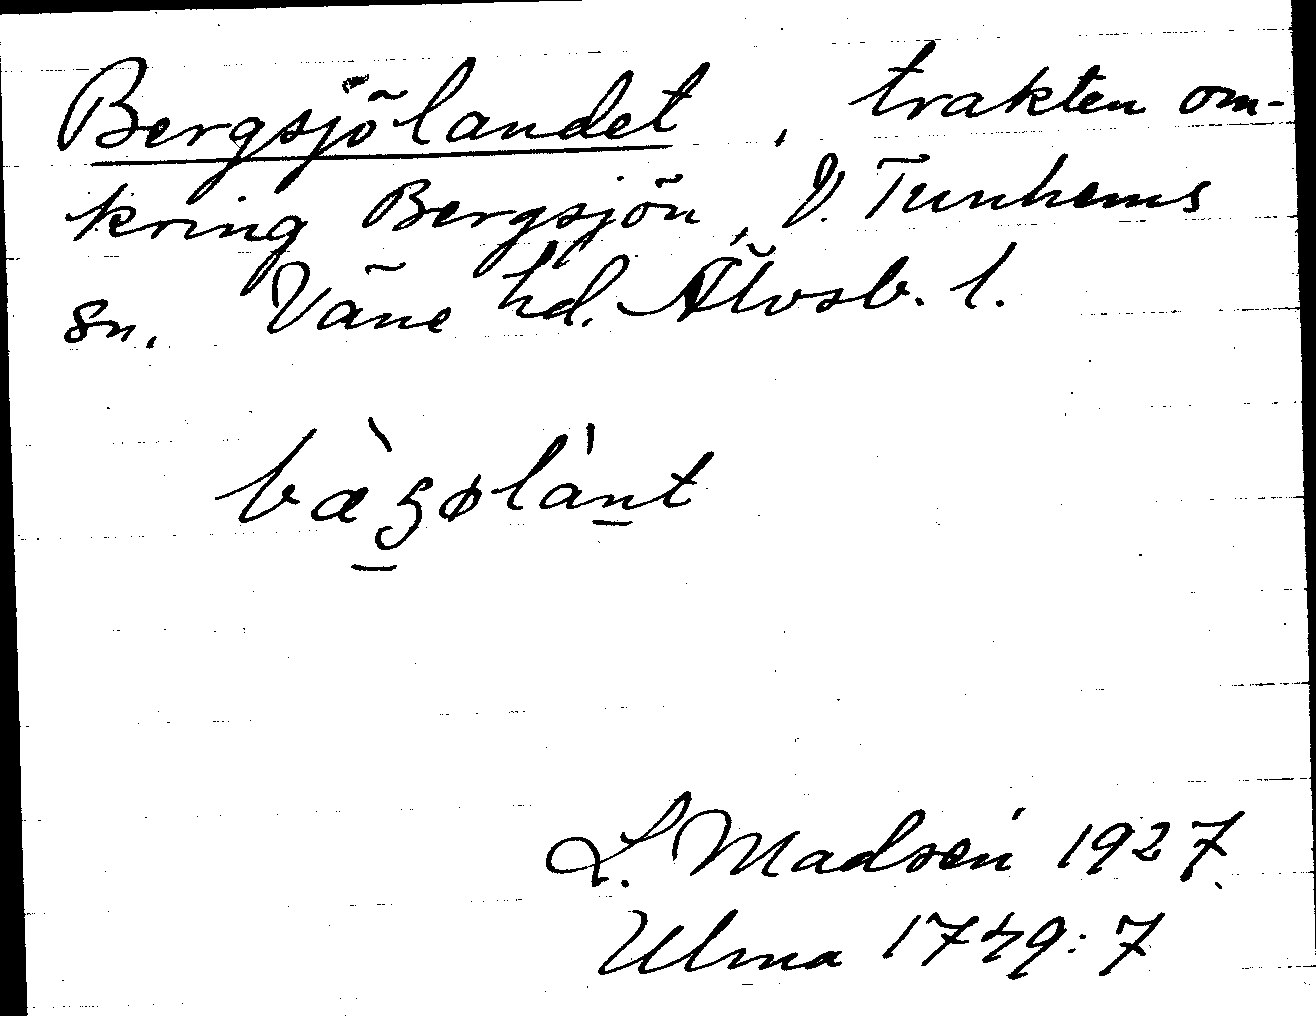 Bergsjölandet, trakten om-
kring Bergsjön, V. Tunhems
sn. Väne hd. Älvsb. l.
bæ̀gølánt
L. Madsén 1927.
Ulma 1749:7